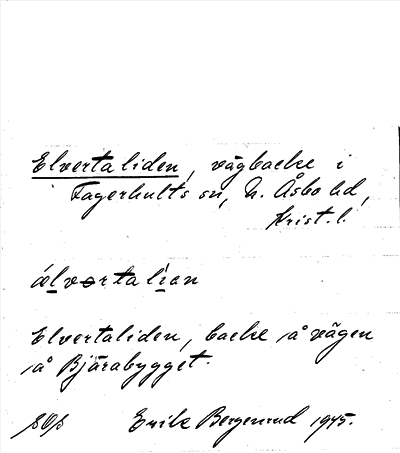 Elvertaliden, vägbacke i
Fagerhults sn, N. Åsbo hd,
Krist. l.
ælvərtalien
Elvertaliden, backe å vägen
å Bjärabygget.
Erik Bergenrud 1945.